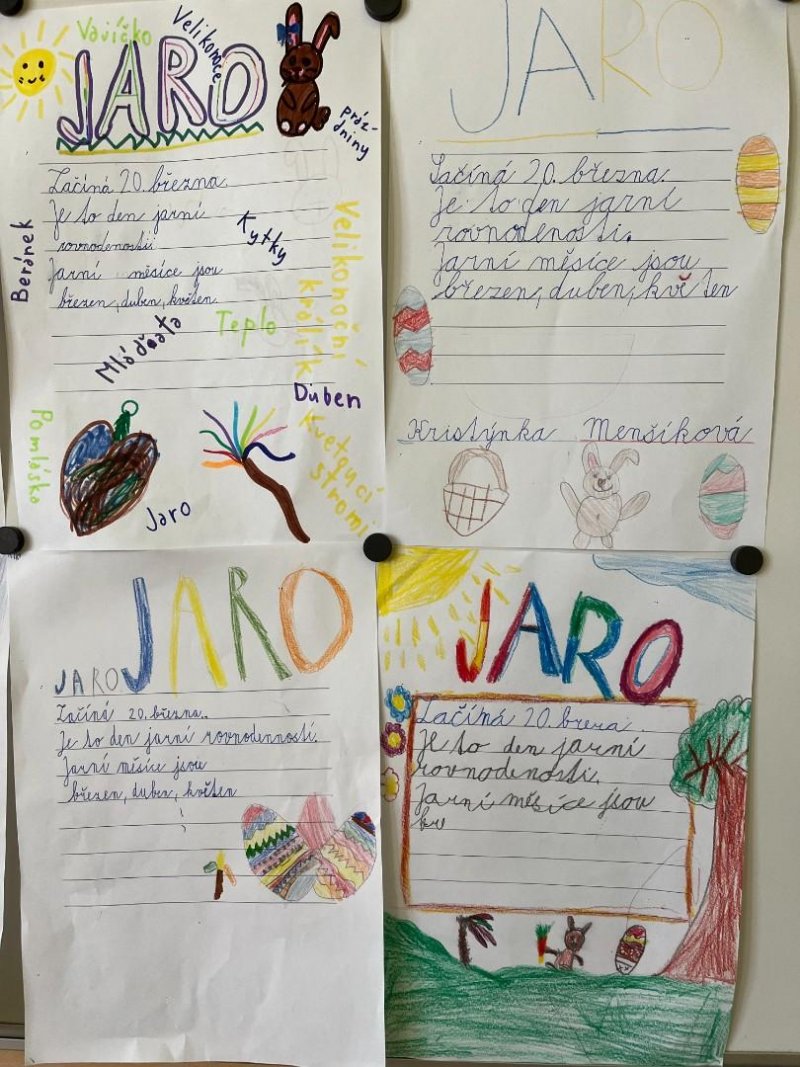 Vajíčko
Velikonoce
JARO
práz-
dniny
Začíná 20. března.
Je to den jarní
rovnodenosti.
Jarní měsíce jsou
březen, duben, květen
Beránek
Kytky
Velikonoční
králík
Teplo
Mláďata
Duben
Pomláska
Kvetoucí
stromi
Jaro
JARO
Začíná 20. března.
Je to den jarní
rovnodenosti.
Jarní měsíce jsou
březen, duben, květen
Kristýnka Menšíková
JARO
JARO
Začíná 20. března.
Je to den jarní rovnodennosti.
Jarní měsíce jsou
březen, duben, květen
JARO
Začíná 20. březa.
Je to den jarní
rovnodenosti.
Jarní měsíce jsou